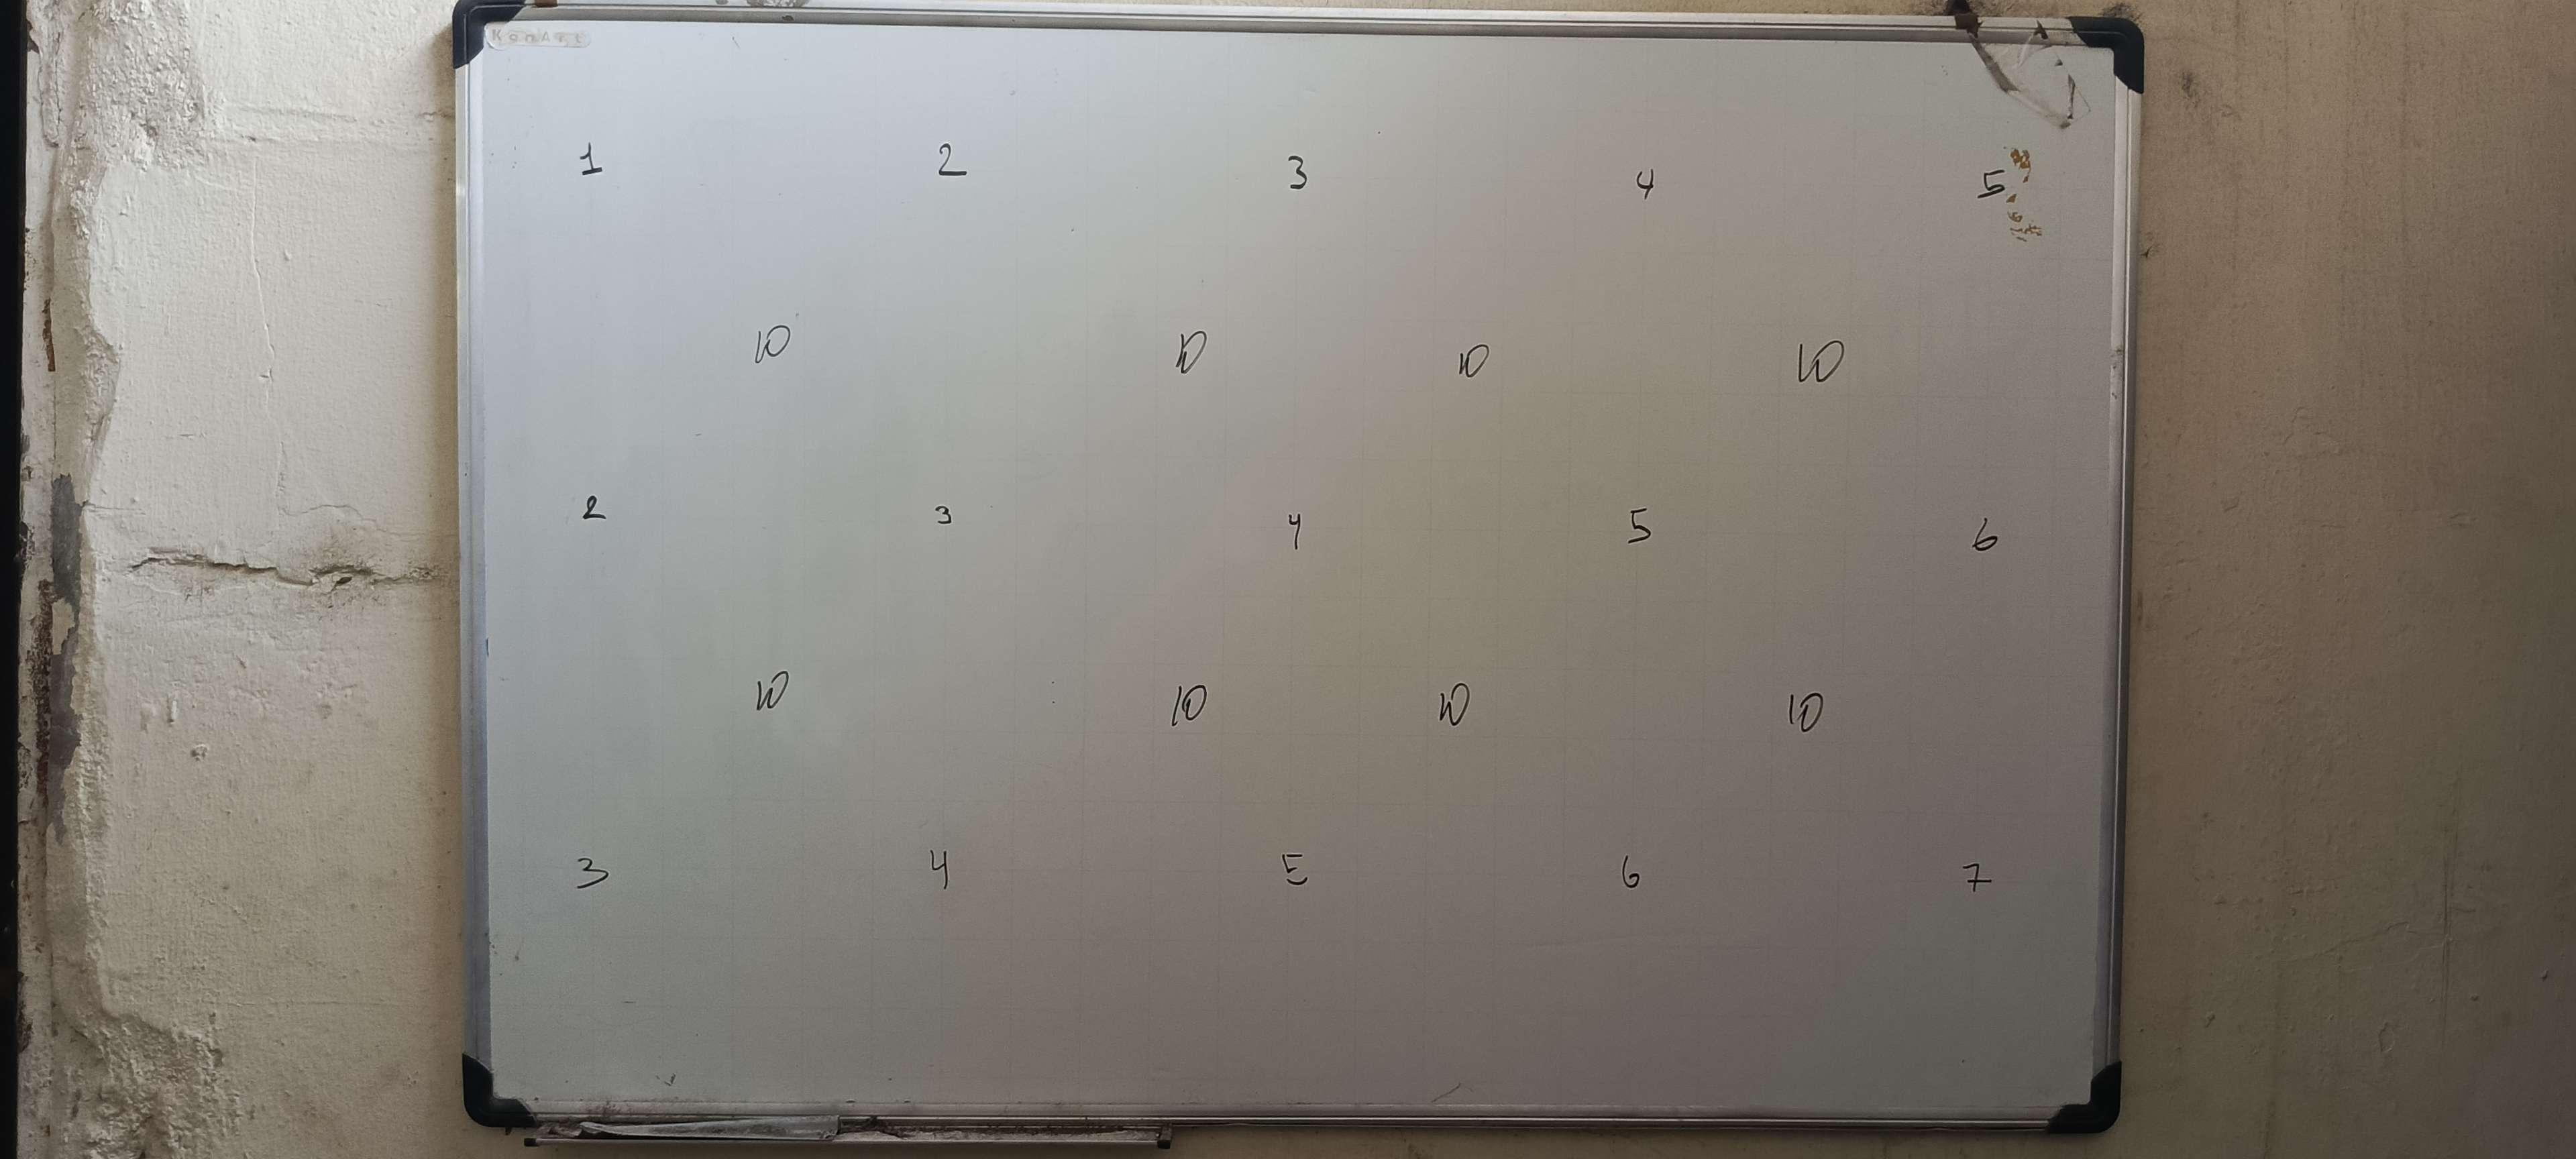 1 2 3 4 5
10 10 10 10
2 3 4 5 6
10 10 10 10
3 4 5 6 7